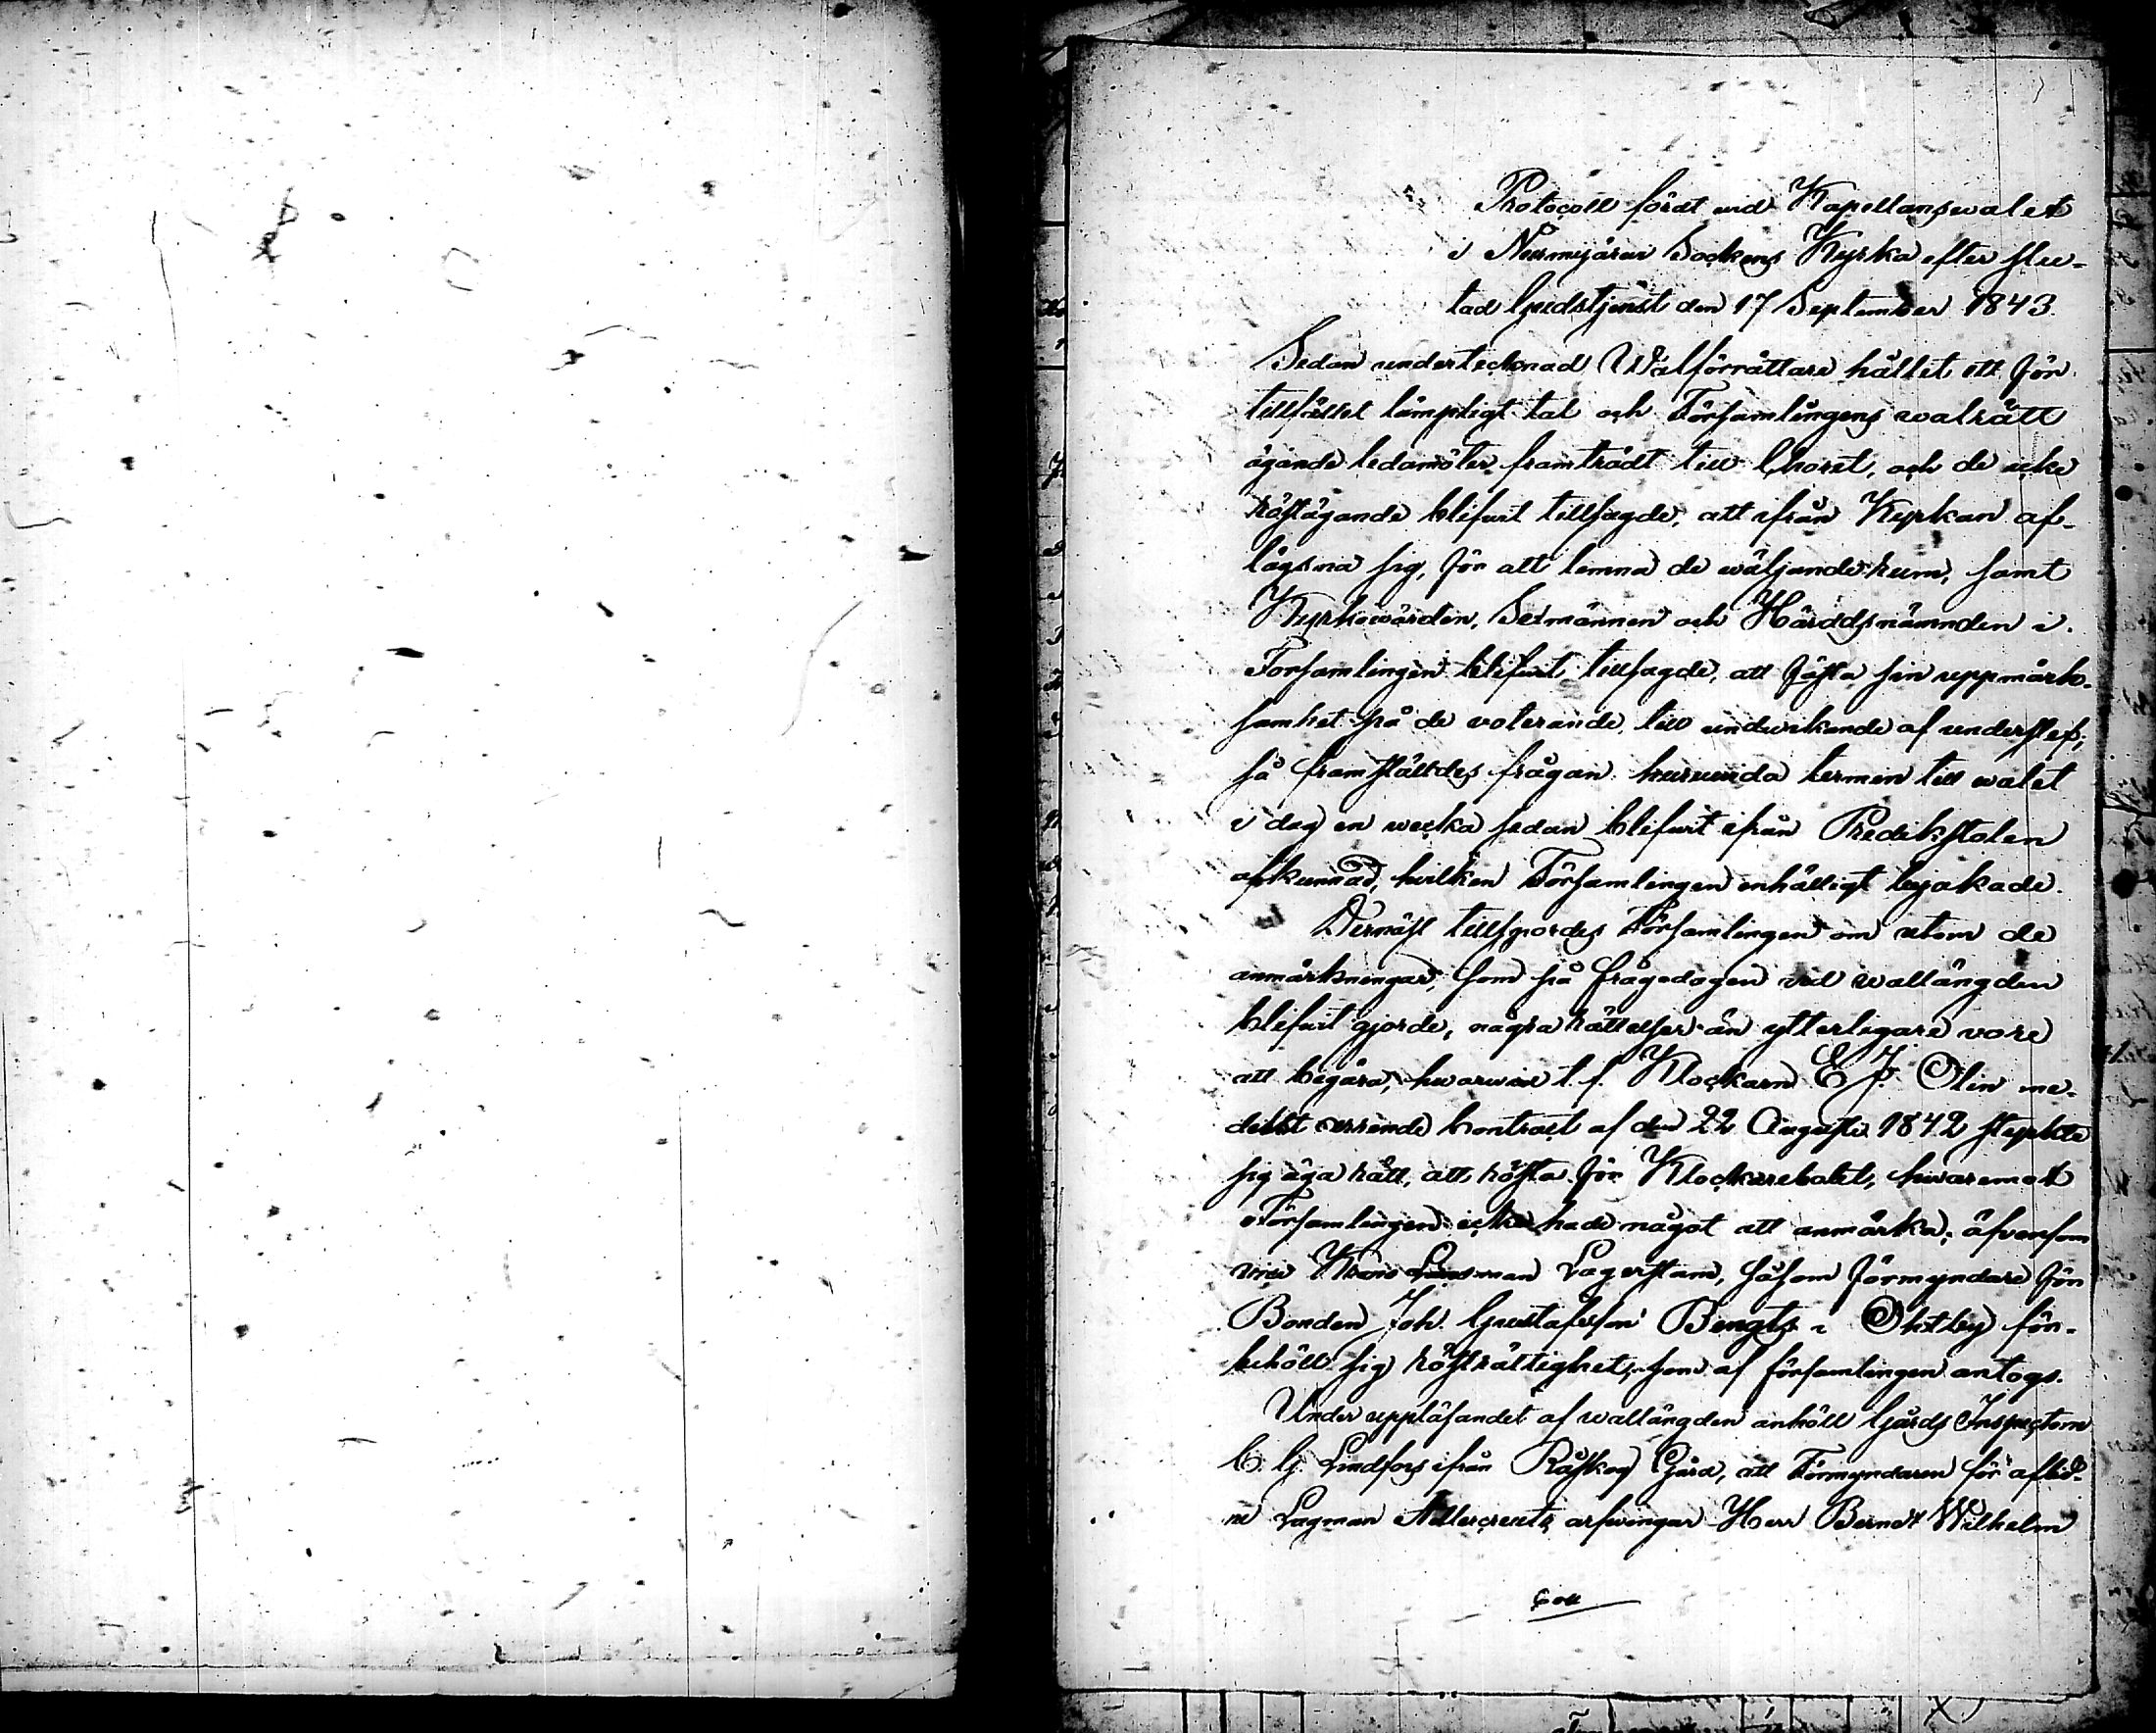 Protocoll fördt wid Kapellanswalet
i Nurmijärwi Sockens Kyrka efter slu-
tad Gudstjenst den 17 September 1843.
Sedan undertecknad Walförrättare hållit ett för
tillfället lämpligt tal och Församlingens walrätt
ägande ledamöter framträdt till Choret, och de icke
röstägande blifwit tillsagde, att ifrån Kyrkan af-
lägsna sig, för att lemna de wäljande rum, samt
Kyrkowärden, Sexmännen och Häradsnämnden i
Församlingen blifwit tillsagde, att fästa sin uppmärk-
samhet på de voterande, till undwikande af underslef;
så framställdes frågan huruwida termin till walet
i dag en wecka sedan blifwit ifrån Predikstolen
afkunnad, hvilken Församlingen enhälligt bejakade.
Dernäst tillspordes Församlingen om utom de
anmärkningar, som på frågedagen wid wallängden
blifwit gjorde, några rättelser än ytterligare vore
att begära, hwarwid t. f. Klockarn E J. Olin me-
delst arrende Contract af den 22 Augusti 1842 styrkte
sig äga rätt, att rösta för Klockarebolet, hwaremot
Församlingen icke hade något att anmärka; äfvensom
vice Krono Länsman Lagerstam, såsom förmyndare för
Bonden Joh. Gustafsson Bengts i Ohtby för-
behöll sig rösträttighet, som af församlingen antogs.
Under uppläsandet af wallängden anhöll Gårds Inspectorn
C. G. Lindfors ifrån Råskog Gård, att Förmyndaren för aflid-
ne Lagman Adlercreutz arfwingar Herr Berndt Wilhelm